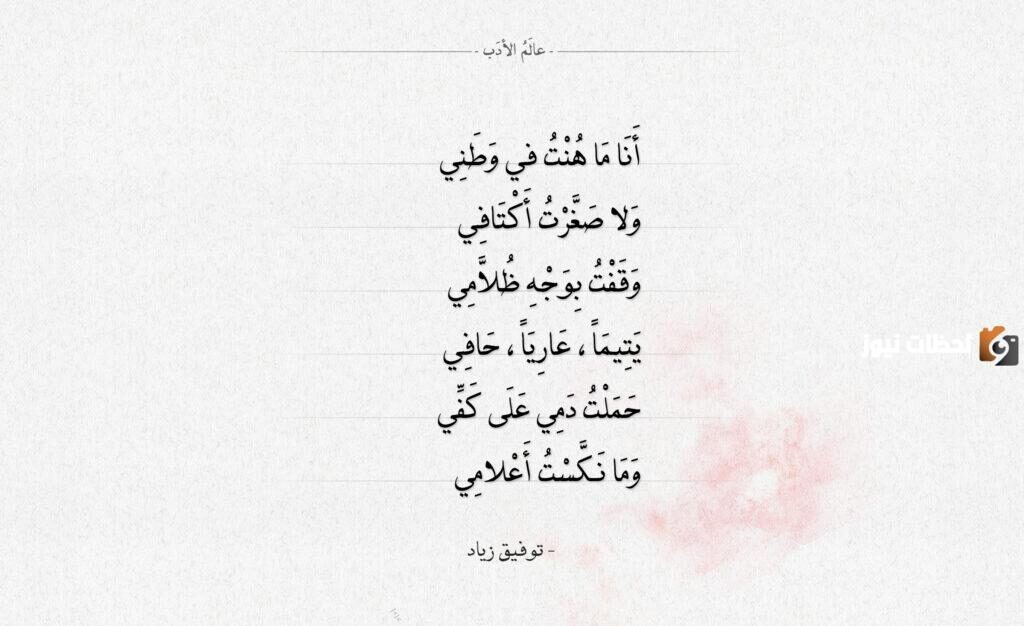 - عالَمُ الأدَب -
أَنَا مَا هُنْتُ في وَطَنِي
وَلا صَغَّرْتُ أَكْتَافِي
وَقَفْتُ بِوَجْهِ ظُلاَّمِي
يَتِيمَاً ، عَارِيَاً ، حَافِي
حَمَلْتُ دَمِي عَلَى كَفِّي
وَمَا نَكَّسْتُ أَعْلامِي
- توفيق زياد
لحظات نيوز